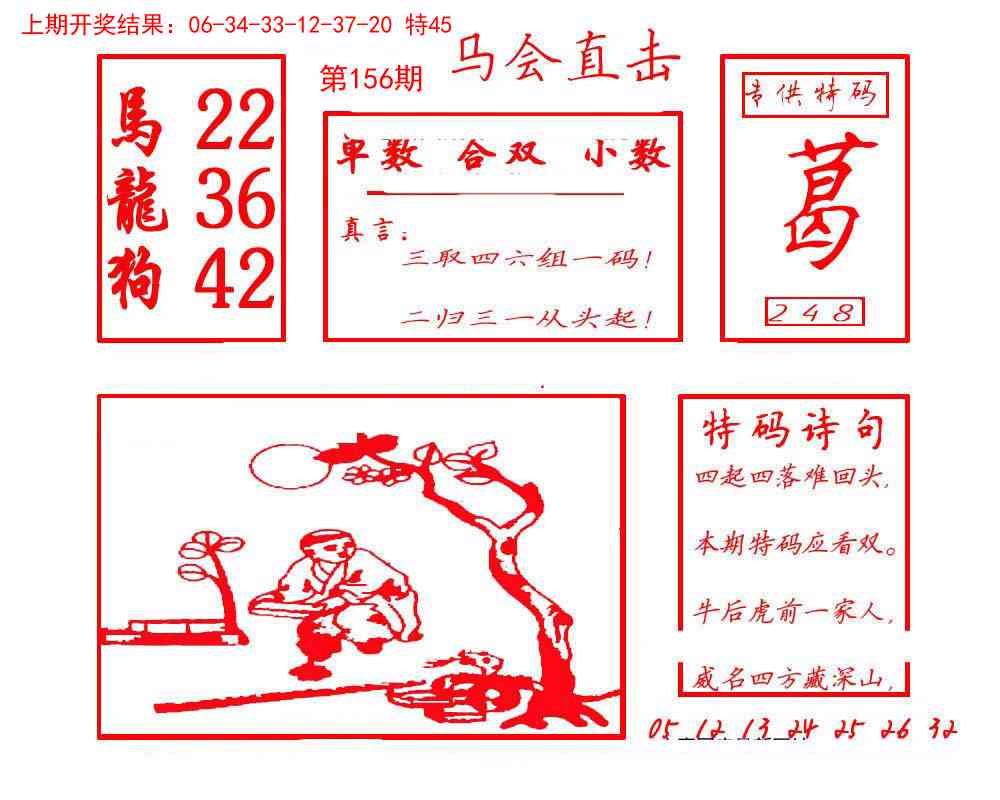 上期开奖结果：06-34-33-12-37-20 特45
第156期
马会直击
馬 22
龍 36
狗 42
单数 合双 小数
真言：
三取四六组一码！
二归三一从头起！
专供特码
葛
248
特码诗句
四起四落难回头，
本期特码应看双。
牛后虎前一家人，
威名四方藏深山，
05 12 13 24 25 26 32